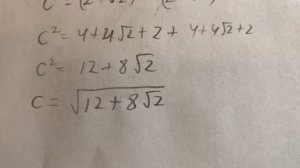 C² = 4+4√2+2 + 4+4√2+2
C² = 12+8√2
C = √(12+8√2)